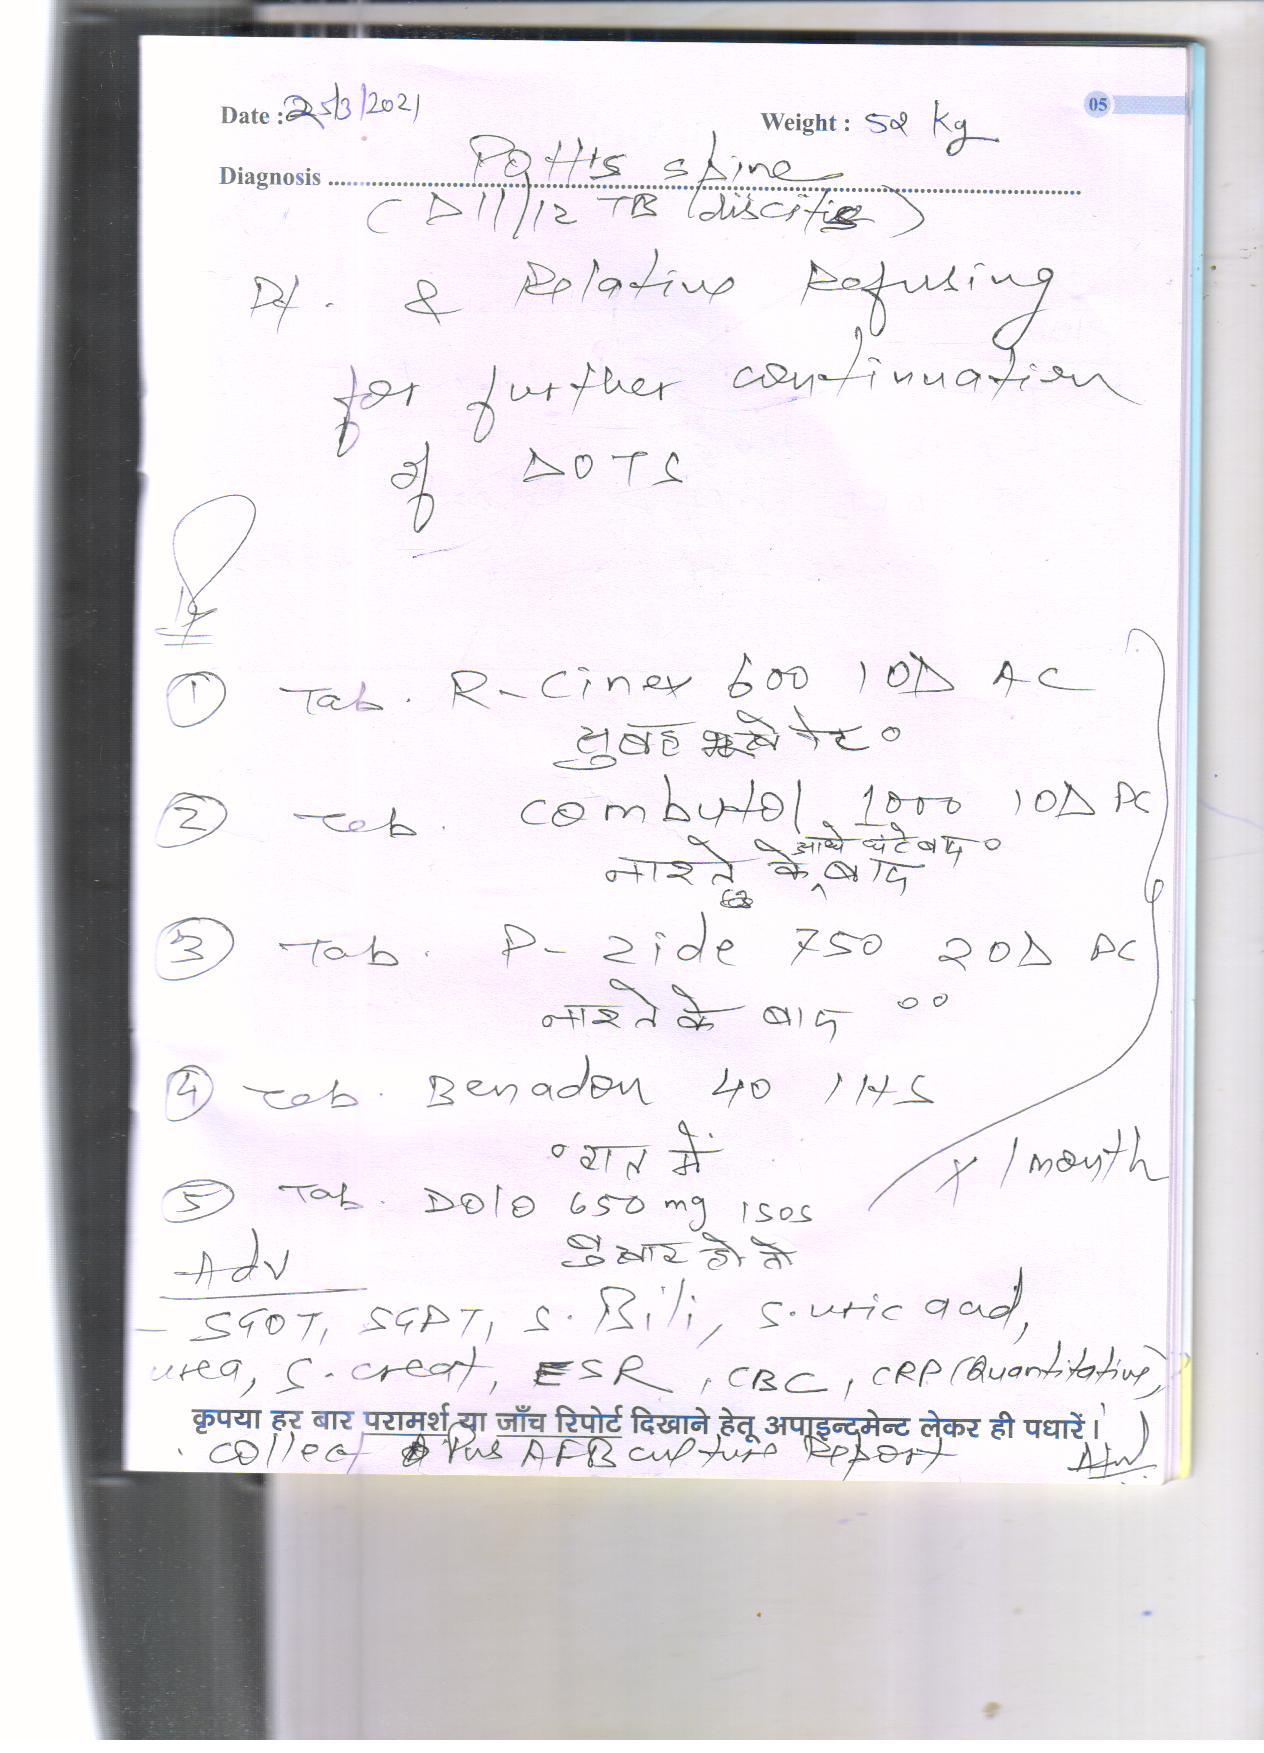 05
Date : 25/3/2021 Weight : 52 kg
Diagnosis Potts spine
(D11/12 TB discitis)
Pt. & Relative Refusing
for further continuation
of DOTS
① Tab. R-Cinex 600 1 OD AC
सुबह भूखे पेट ०
② Tab. Combutol 1000 1 OD PC
आधे घंटे बाद ०
नाश्ते के बाद
③ Tab. P-zide 750 2 OD PC
नाश्ते के बाद ००
④ Tab. Benadon 40 1 HS
० रात में
x 1 month
⑤ Tab. Dolo 650 mg 1 SOS
बुखार हो तो
Adv
- SGOT, SGPT, S. Bili, S. uric acid,
urea, S. creat, ESR, CBC, CRP (Quantitative)
कृपया हर बार परामर्श या जाँच रिपोर्ट दिखाने हेतू अपाइन्टमेन्ट लेकर ही पधारें।
Collect Pus AFB culture Report